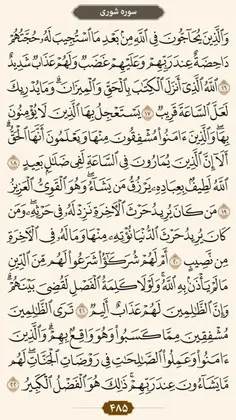 سوره شوری
وَالَّذِينَ يُحَاجُّونَ فِي اللَّهِ مِنْ بَعْدِ مَا اسْتُجِيبَ لَهُ حُجَّتُهُمْ
دَاحِضَةٌ عِنْدَ رَبِّهِمْ وَعَلَيْهِمْ غَضَبٌ وَلَهُمْ عَذَابٌ شَدِيدٌ
١٦ اللَّهُ الَّذِي أَنْزَلَ الْكِتَابَ بِالْحَقِّ وَالْمِيزَانَ وَمَا يُدْرِيكَ
لَعَلَّ السَّاعَةَ قَرِيبٌ ١٧ يَسْتَعْجِلُ بِهَا الَّذِينَ لَا يُؤْمِنُونَ
بِهَا وَالَّذِينَ آمَنُوا مُشْفِقُونَ مِنْهَا وَيَعْلَمُونَ أَنَّهَا الْحَقُّ
أَلَا إِنَّ الَّذِينَ يُمَارُونَ فِي السَّاعَةِ لَفِي ضَلَالٍ بَعِيدٍ ١٨
اللَّهُ لَطِيفٌ بِعِبَادِهِ يَرْزُقُ مَنْ يَشَاءُ وَهُوَ الْقَوِيُّ الْعَزِيزُ
١٩ مَنْ كَانَ يُرِيدُ حَرْثَ الْآخِرَةِ نَزِدْ لَهُ فِي حَرْثِهِ وَمَنْ
كَانَ يُرِيدُ حَرْثَ الدُّنْيَا نُؤْتِهِ مِنْهَا وَمَا لَهُ فِي الْآخِرَةِ
مِنْ نَصِيبٍ ٢٠ أَمْ لَهُمْ شُرَكَاءُ شَرَعُوا لَهُمْ مِنَ الدِّينِ
مَا لَمْ يَأْذَنْ بِهِ اللَّهُ وَلَوْلَا كَلِمَةُ الْفَصْلِ لَقُضِيَ بَيْنَهُمْ
وَإِنَّ الظَّالِمِينَ لَهُمْ عَذَابٌ أَلِيمٌ ٢١ تَرَى الظَّالِمِينَ
مُشْفِقِينَ مِمَّا كَسَبُوا وَهُوَ وَاقِعٌ بِهِمْ وَالَّذِينَ
آمَنُوا وَعَمِلُوا الصَّالِحَاتِ فِي رَوْضَاتِ الْجَنَّاتِ لَهُمْ
مَا يَشَاءُونَ عِنْدَ رَبِّهِمْ ذَلِكَ هُوَ الْفَضْلُ الْكَبِيرُ ٢٢
۴۸۵